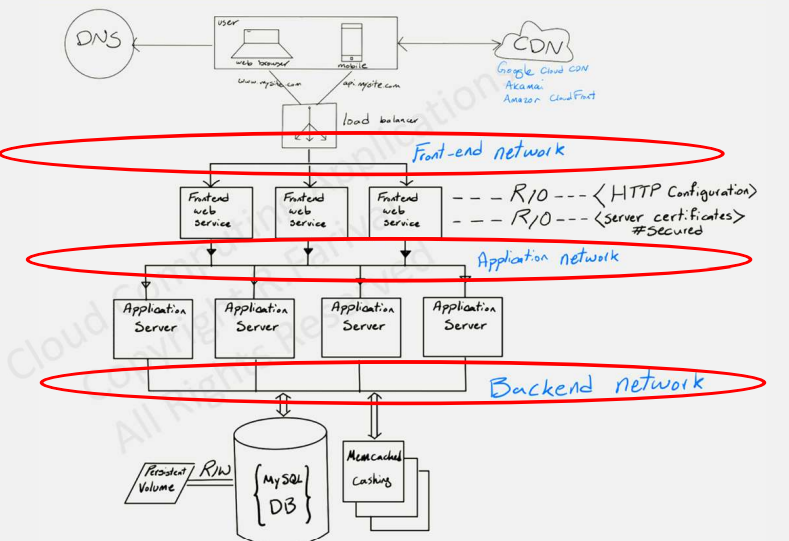 user
DNS
web browser
mobile
CDN
Google Cloud CDN
Akamai
Amazon CloudFront
www.mysite.com
api.mysite.com
load balancer
Front-end network
Frontend
web
service
Frontend
web
service
Frontend
web
service
--- R/O --- <HTTP Configuration>
--- R/O --- <server certificates>
#secured
Application network
Application
Server
Application
Server
Application
Server
Application
Server
Backend network
Persistent
Volume
R/W
{MySQL
DB}
Memcached
Cashing
Cloud Computing Applications
Copyright R.Farivar
All Rights Reserved